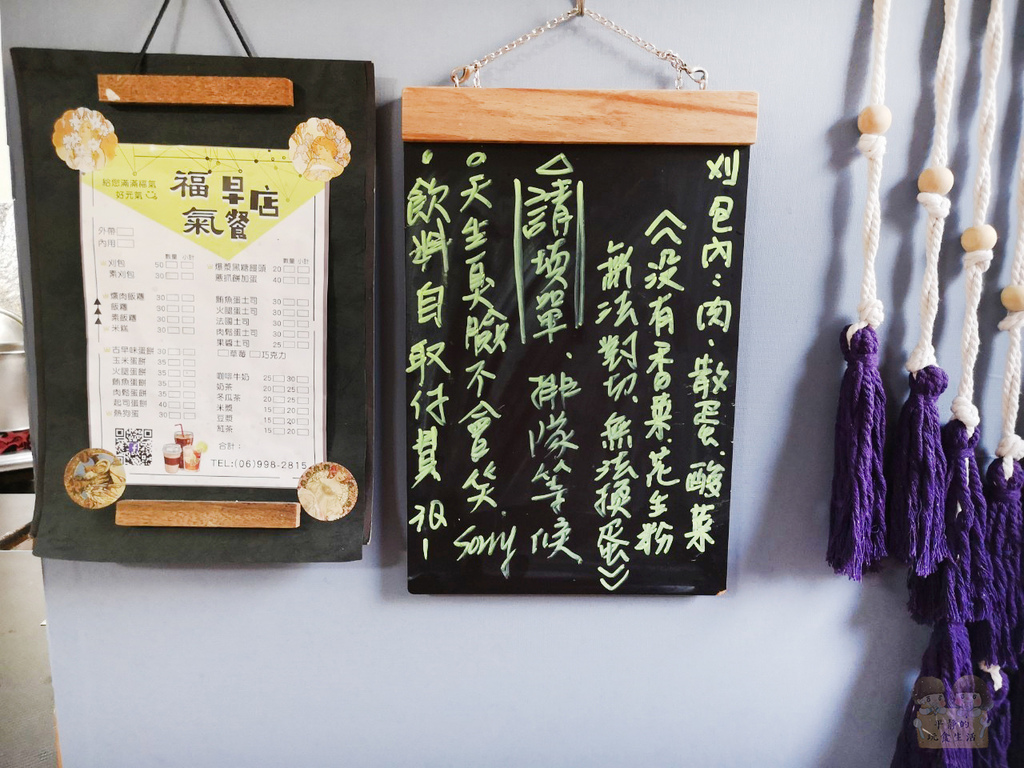 給您滿滿福氣
好元氣
福氣早餐店
外帶
內用
數量 小計
刈包 50
素刈包 30
燻肉飯糰 30
飯糰 30
素飯糰 30
米糕 30
古早味蛋餅 30
玉米蛋餅 35
火腿蛋餅 35
鮪魚蛋餅 35
肉鬆蛋餅 35
起司蛋餅 40
熱狗蛋 30
數量 小計
爆漿黑糖饅頭 20
蔥抓餅加蛋 40
鮪魚蛋土司 30
火腿蛋土司 30
法國土司 30
肉鬆蛋土司 30
果醬土司 25
草莓 巧克力
咖啡牛奶 25 30
奶茶 20 25
冬瓜茶 20 25
米漿 15 20
豆漿 15 20
紅茶 15 20
合計：
TEL:(06)998-2815
刈包內：肉、散蛋、酸菜
《沒有香菜、花生粉
無法對切、無法換蛋》
△請填單、排隊等候
○天生臭臉不會笑 sorry
•飲料自取付費哦!
玩食生活